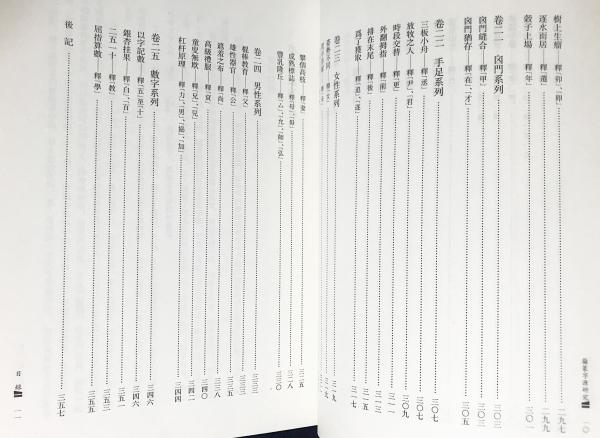 樹上生瘤 釋「卯」、「卵」 二九七
逐水而居 釋「遷」 二九九
穀子上場 釋「年」 三〇一
卷二一 囟門系列 三〇三
囟門縫合 釋「甲」 三〇三
囟門猶存 釋「在」、「才」 三〇五
卷二二 手足系列 三〇七
三板小舟 釋「丞」 三〇七
放牧之人 釋「尹」、「君」 三〇七
時段交替 釋「更」 三〇九
外翻拇指 釋「厠」
排在末尾 釋「後」 三一五
爲了獲取 釋「追」、「逐」 三一七
卷二三 女性系列 三一九
釋「女」 三一九
攀個高枝 釋「妻」 三二五
成熟標誌 釋「母」、「毒」 三二八
豐乳隆丘 釋「厶」、「允」、「師」、「弘」 三三〇
卷二四 男性系列 三三三
棍棒教育 釋「父」 三三三
雄性器官 釋「公」 三三五
遮羞之布 釋「尚」 三三八
高級禮服 釋「黃」 三四〇
童叟無欺 釋「兄」、「兒」 三四二
杠杆原理 釋「力」、「男」、「協」、「加」 三四四
卷二五 數字系列 三四六
以字記數 釋「五」至「十」 三四六
銀杏挂果 釋「白」、「百」
二五一十 釋「教」 三五一
屈指算數 釋「學」 三五五
後記 三五七
一〇
目錄 一一